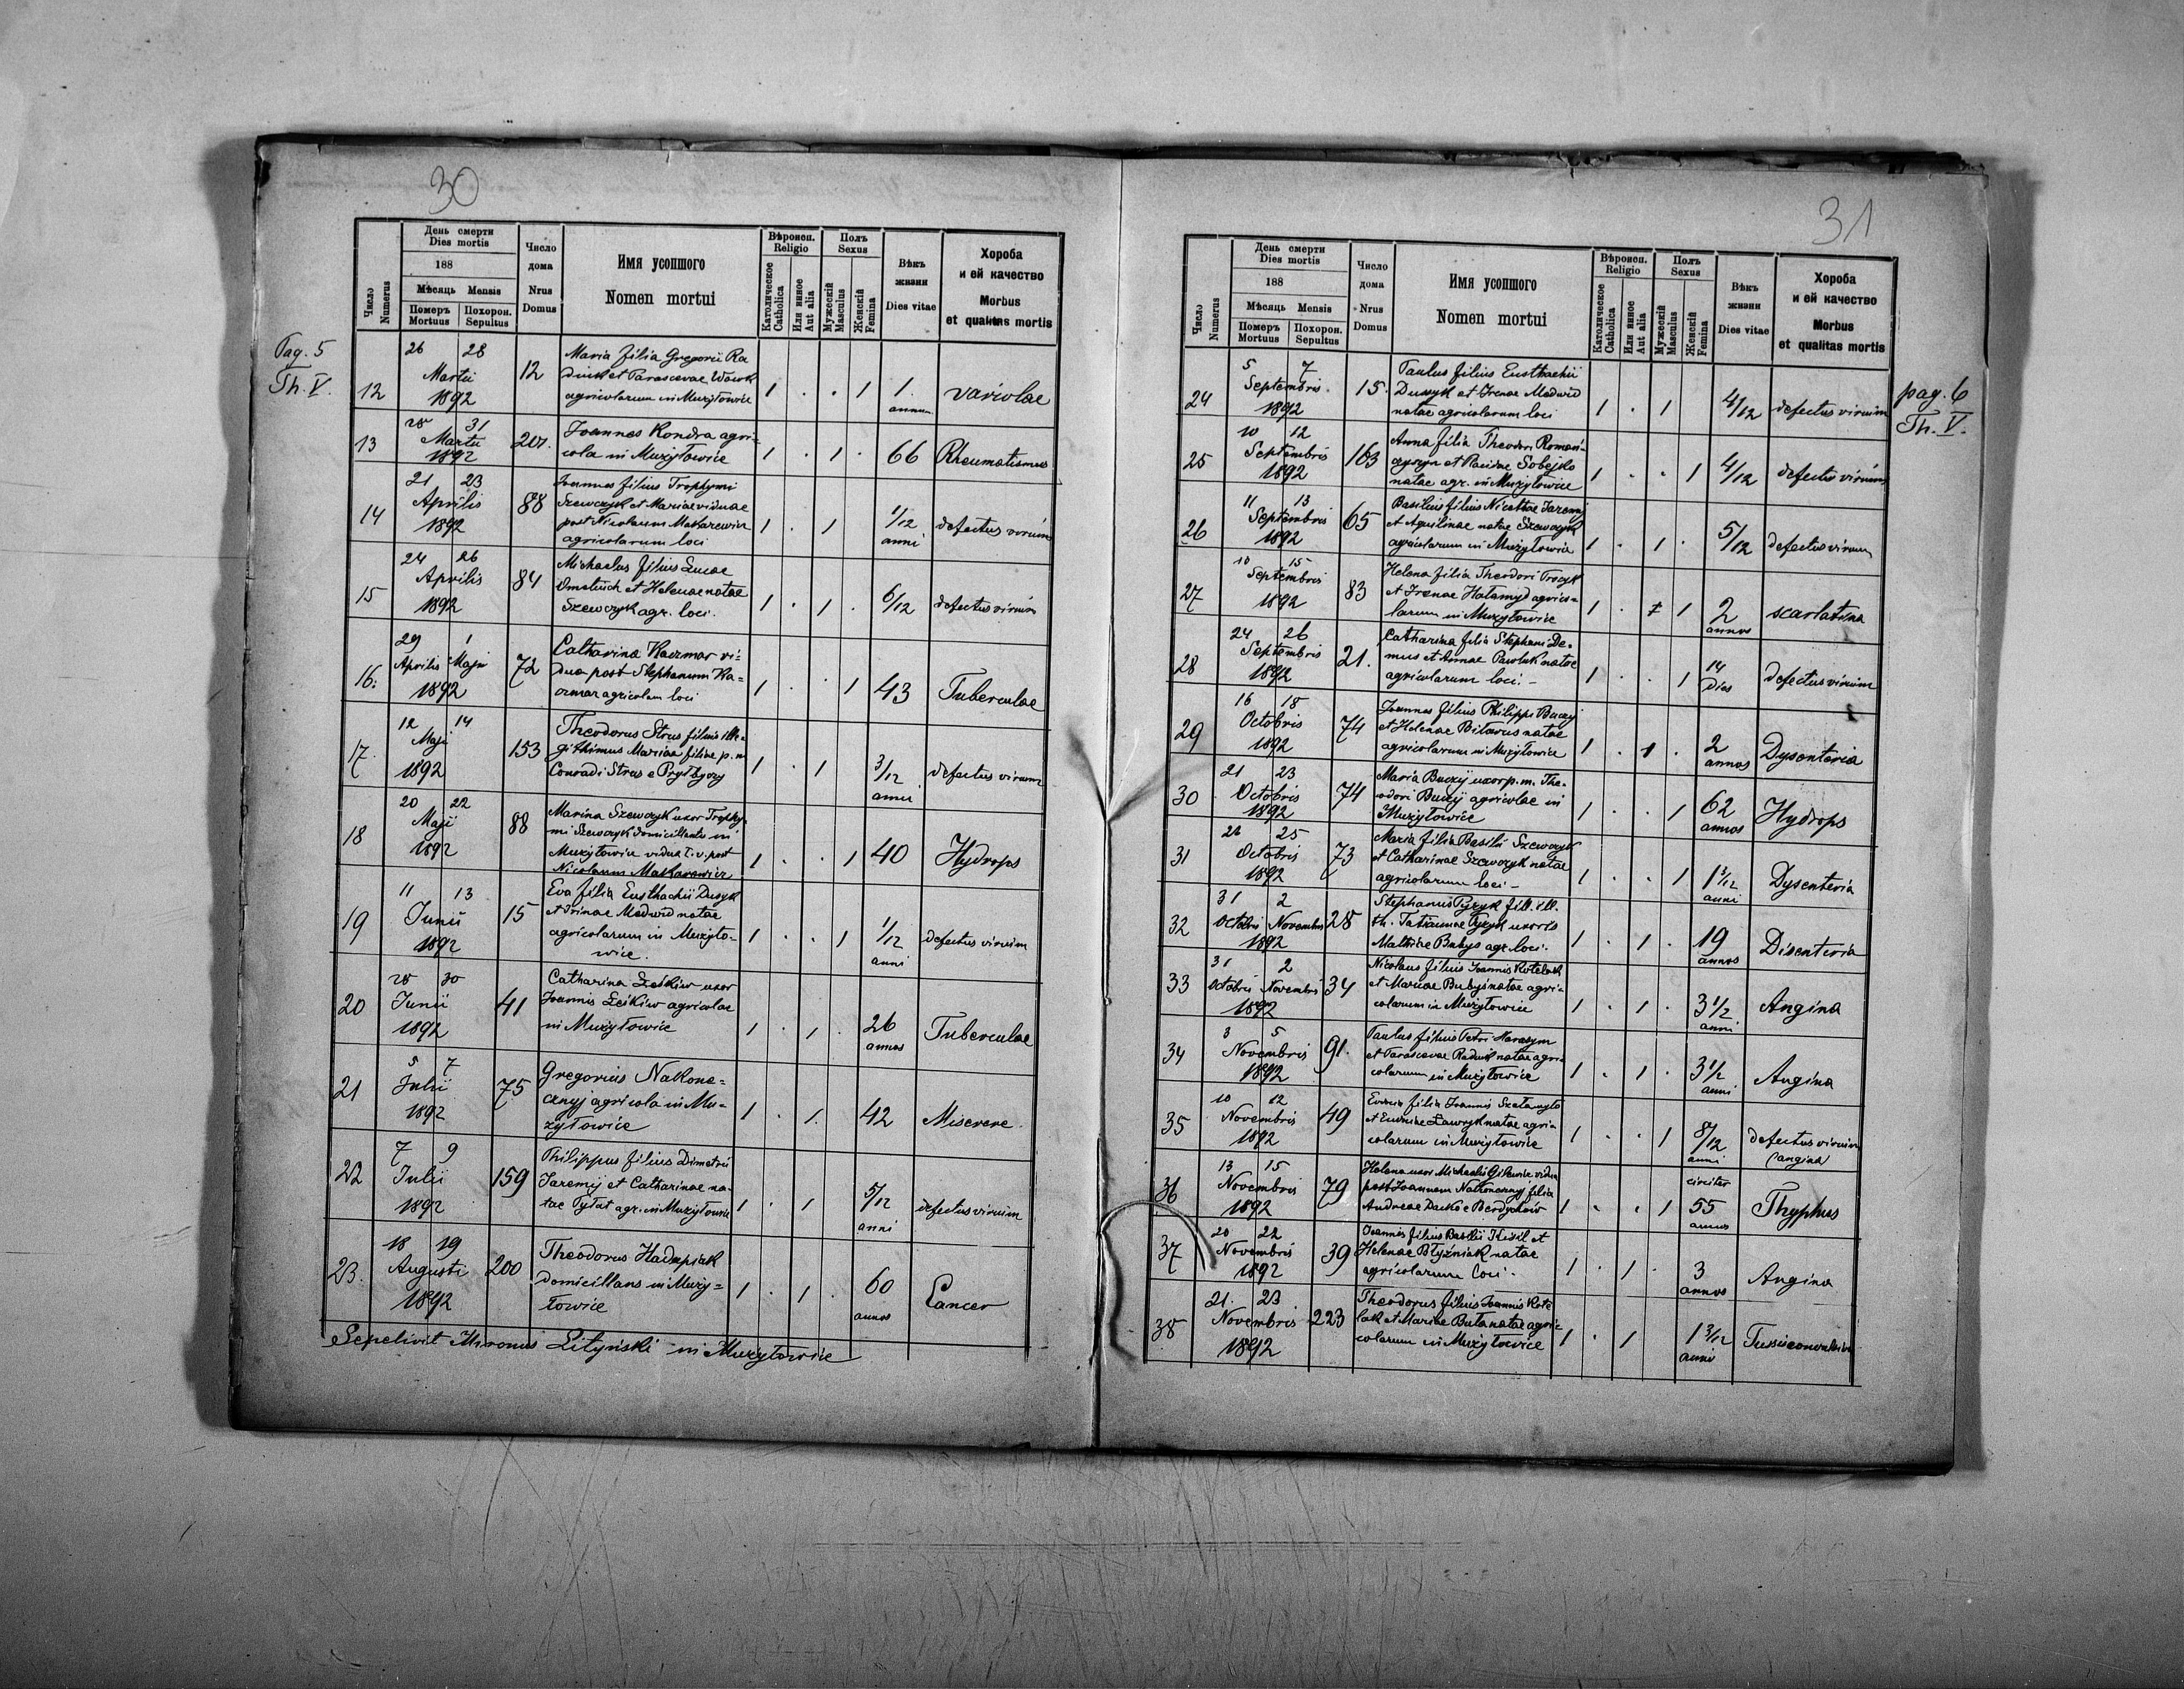 30
Pag. 5
Th. V.
Число
Numerus
День смерти
Dies mortis
188
Мѣсяць Mensis
Померъ Похорон.
Mortuus Sepultus
Число
дома
Nrus
Domus
Имя усопшого
Nomen mortui
Вѣроисп.
Religio
Католическое
Catholica
Или инное
Aut alia
Полъ
Sexus
Мужескій
Masculus
Женскій
Femina
Вѣкъ
жизни
Dies vitae
Хороба
и ей качество
Morbus
et qualitas mortis
12
26 28
Martii
1892
12
Maria filia Gregorii Ra
duk et Parascevae Wowk
agricolarum in Mużyłowice
1 . . 1
1.
annum
variolae
13
28 31
Martii
1892
201.
Joannes Kondra agri-
cola in Mużyłowice
1 . 1 .
66
Rheumatismus
14
21 23
Aprilis
1892
88
Joannes filius Trophymi
Szewczyk et Mariae viduae
post Nicolaum Makarewicz
agricolarum loci
1 . 1
1/12
anni
defectus virium
15
24 26
Aprilis
1892
84
Michaelus filius Lucae
Omeluch et Helenae natae
Szewczyk agr. loci.
1 . 1 .
6/12
defectus virium
16.
29 1
Aprilis Maji
1892
72
Catharina Kaczmar vi-
dua post Stephanum Ka-
czmar agricolam loci
1 . . 1
43
Tuberculae
17
12 14
Maji
1892
153
Theodorus Strus filius ille-
githimus Mariae filiae p. m.
Conradi Strus e Przyłbycy
1 . 1
3/12
anni
defectus virium
18
20 22
Maji
1892
88
Marina Szewczyk uxor Trophy-
mi Szewczyk domicillantis in
Mużyłowice vidua 1. v. post
Nicolaum Makarewicz
1 . . 1
40
Hydrops
19
11 13
Junii
1892
15
Eva filia Eusthachii Dusyk
et Irinae Medwid natae
agricolarum in Mużyło-
wice.
1 . . 1
1/12
anni
defectus virium
20
28 30
Junii
1892
41
Catharina Leśkiw uxor
Joannis Leśkiw agricolae
in Mużyłowice
1 . 1 .
26
annos
Tuberculae
21
5 7
Julii
1892
75
Gregorius Nakone-
cznyj agricola in Mu-
żyłowice
1 . 1.
42
Miserere
22
7 9
Julii
1892
159
Philippus filius Dimetrii
Jaremij et Catharinae na-
tae Pyłat agr. in Mużyłowice
1 . 1
5/12
anni
defectus virium
23.
18 19
Augusti
1892
200
Theodorus Hadupiak
domicillans in Muży-
łowice
1 . 1 .
60
annos
Cancer
Sepelivit Mironus Lityński in Mużyłowice
31
pag. 6
Th. V.
Число
Numerus
День смерти
Dies mortis
188
Мѣсяць Mensis
Померъ Похорон.
Mortuus Sepultus
Число
дома
Nrus
Domus
Имя усопшого
Nomen mortui
Вѣроисп.
Religio
Католическое
Catholica
Или инное
Aut alia
Полъ
Sexus
Мужескій
Masculus
Женскій
Femina
Вѣкъ
жизни
Dies vitae
Хороба
и ей качество
Morbus
et qualitas mortis
24
5 7
Septembris
1892
15.
Paulus filius Eusthachii
Dussyk et Irenae Medwid
natae agricolarum loci
1 . 1
4/12
defectus virium
25
10 12
Septembris
1892
163
Anna filia Theodori Romań-
et Sobejko
natae agr. in Mużyłowice
1 . . 1
4/12
defectus virium
26
11 13
Septembris
1892
65
Basilius filius Nicethae Jaremij
et Aquilinae natae Szewczyk
agricolarum in Mużyłowice
1 . 1 .
5/12
defectus virium
27
15
Septembris
1892
83
Helena filia Theodori Trocyk
et Irenae Hałamyd agrico-
larum in Mużyłowice
1 . 1
2
annos
scarlatina
28
24 26
Septembris
1892
21.
Catharina filia Stephani De-
mus et Annae Pawluk natae
agricolarum loci. -
1 . . 1
14
dies
defectus virium
29
16 18
Octobris
1892
74
Joannes filius Philippi Buczij
et Helenae Bilorus natae
agricolarum in Mużyłowice
1 . 1 .
2
annos
Dysenteria
30
21 23
Octobris
1892
74
Maria Buczij uxor p. m. The-
odori Buczij agricolae in
Mużyłowice
1 . . 1
62
annos
Hydrops
31
25
Octobris
1892
73
Maria filia Basilii Szewczyk
et Catharinae Szewczyk natae
agricolarum loci -
1 . . 1
anni
Dysenteria
32
31 2
Octobris Novembris
1892
28
Stephanus Pyzyk fil. ill.
th. Tatiannae Pyzyk uxoris
Bubys agr. loci.
1 . 1 .
19
annos
Disenteria
33
31 2
Octobris Novembris
1892
34
Nicolaus filius Joannis Kotelach
et Mariae Bubyś natae agri-
colarum in Mużyłowice
1 . 1 .
3 1/2
anni
Angina
34
3 5
Novembris
1892
91.
Paulus filius Petri Harasym
et Parascevae Raduk natae agri-
colarum in Mużyłowice
1 . 1 .
3 1/2
anni
Angina
35
10 12
Novembris
1892
49
filia Joannis
et Ławryk natae agri-
colarum in Mużyłowice
1 . . 1
8/12
anni
defectus virium
(angina)
36
13 15
Novembris
1892
79
Helena uxor Michaelis vidua
post Joannem Nakonecznyj filia
Andreae Dacko e Berdychów
1 . . 1
circiter
55
annos
Thyphus
37
20 22
Novembris
1892
39
Joannes filius Basilii Kisil et
Helenae Błyźniak natae
agricolarum loci.
1 . 1 .
3
annos
Angina
38
21. 23
Novembris
1892
223
Theodorus filius Joannis Kote
lak et Mariae Buła natae agri-
colarum in Mużyłowice
1 . 1
1 3/12
anni